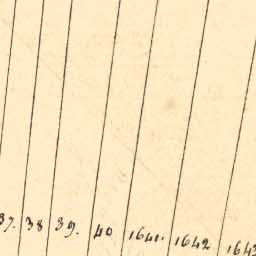 37. 38 39. 40 1641. 1642 1643